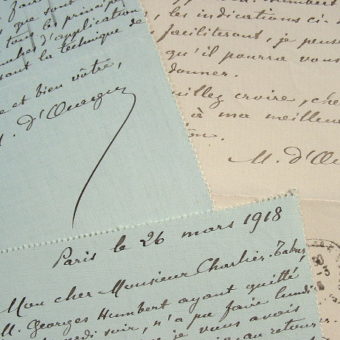 faisan
que sont
tous les princip
d'application
sant la technique de
e et bien vôtre,
M. d'Ou
les indications ci-
faciliteront, je pens
qu'il pourra vous
donner.
illez croire, che
à ma meilleu
M. d'Ou
Paris le 26 mars 1918
Mon cher Monsieur Charlier-Tabur,
M. Georges Humbert ayant quitté
edi soir, n'a pu faire lundi
je vous avais
au retour